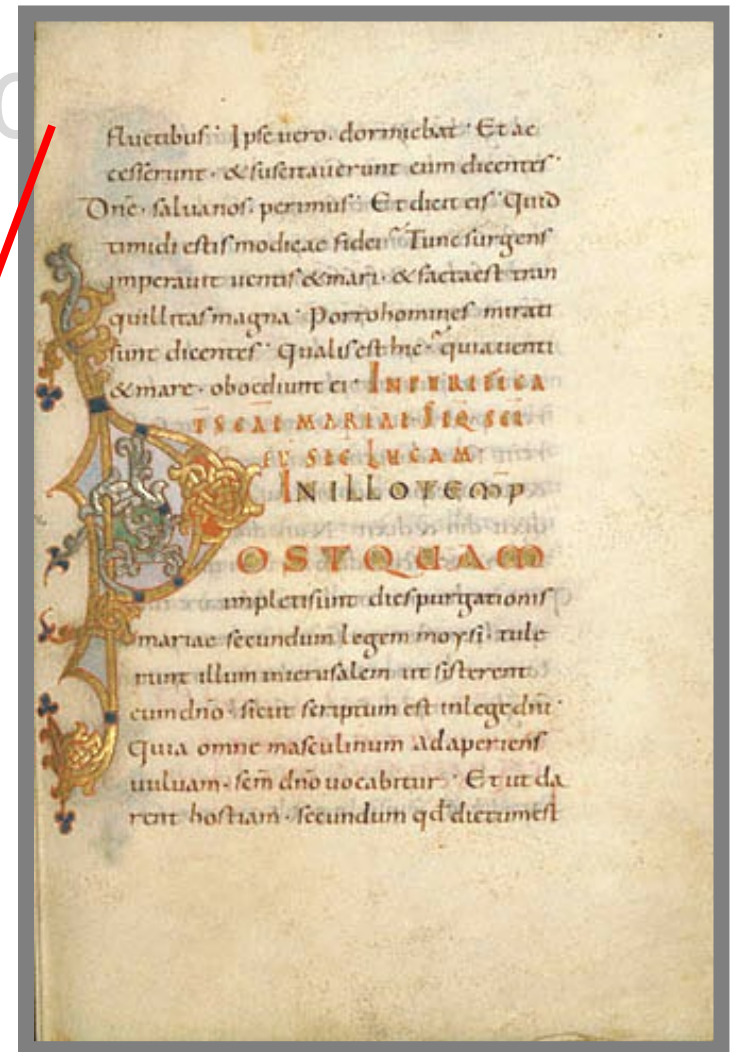 fluctibus · Ipse uero · dormiebat · Et ac
cesserunt · & suscitauerunt eum dicentes ·
Dñe · saluanos · perimus · Et dicit eis · Quid
timidi estis modicae fidei · Tunc surgens
imperauit uentis & mari · & facta est tran
quillitas magna · Porro homines mirati
sunt dicentes · Qualis est hic · quia uenti
& mare · oboediunt ei · IN PURIFICA
T̄ SCAE MARIAE SEQ SCI
EV SEC LUCAM
IN ILLO TEMP
POSTQUAM
impleti sunt dies purgationis
mariae secundum legem moysi · tule
runt illum in ierusalem ut sisterent
eum dño · sicut scriptum est in lege dñi ·
Quia omne masculinum adaperiens
uuluam · scm̄ dño uocabitur · Et ut da
rent hostiam · secundum qd̄ dictum est